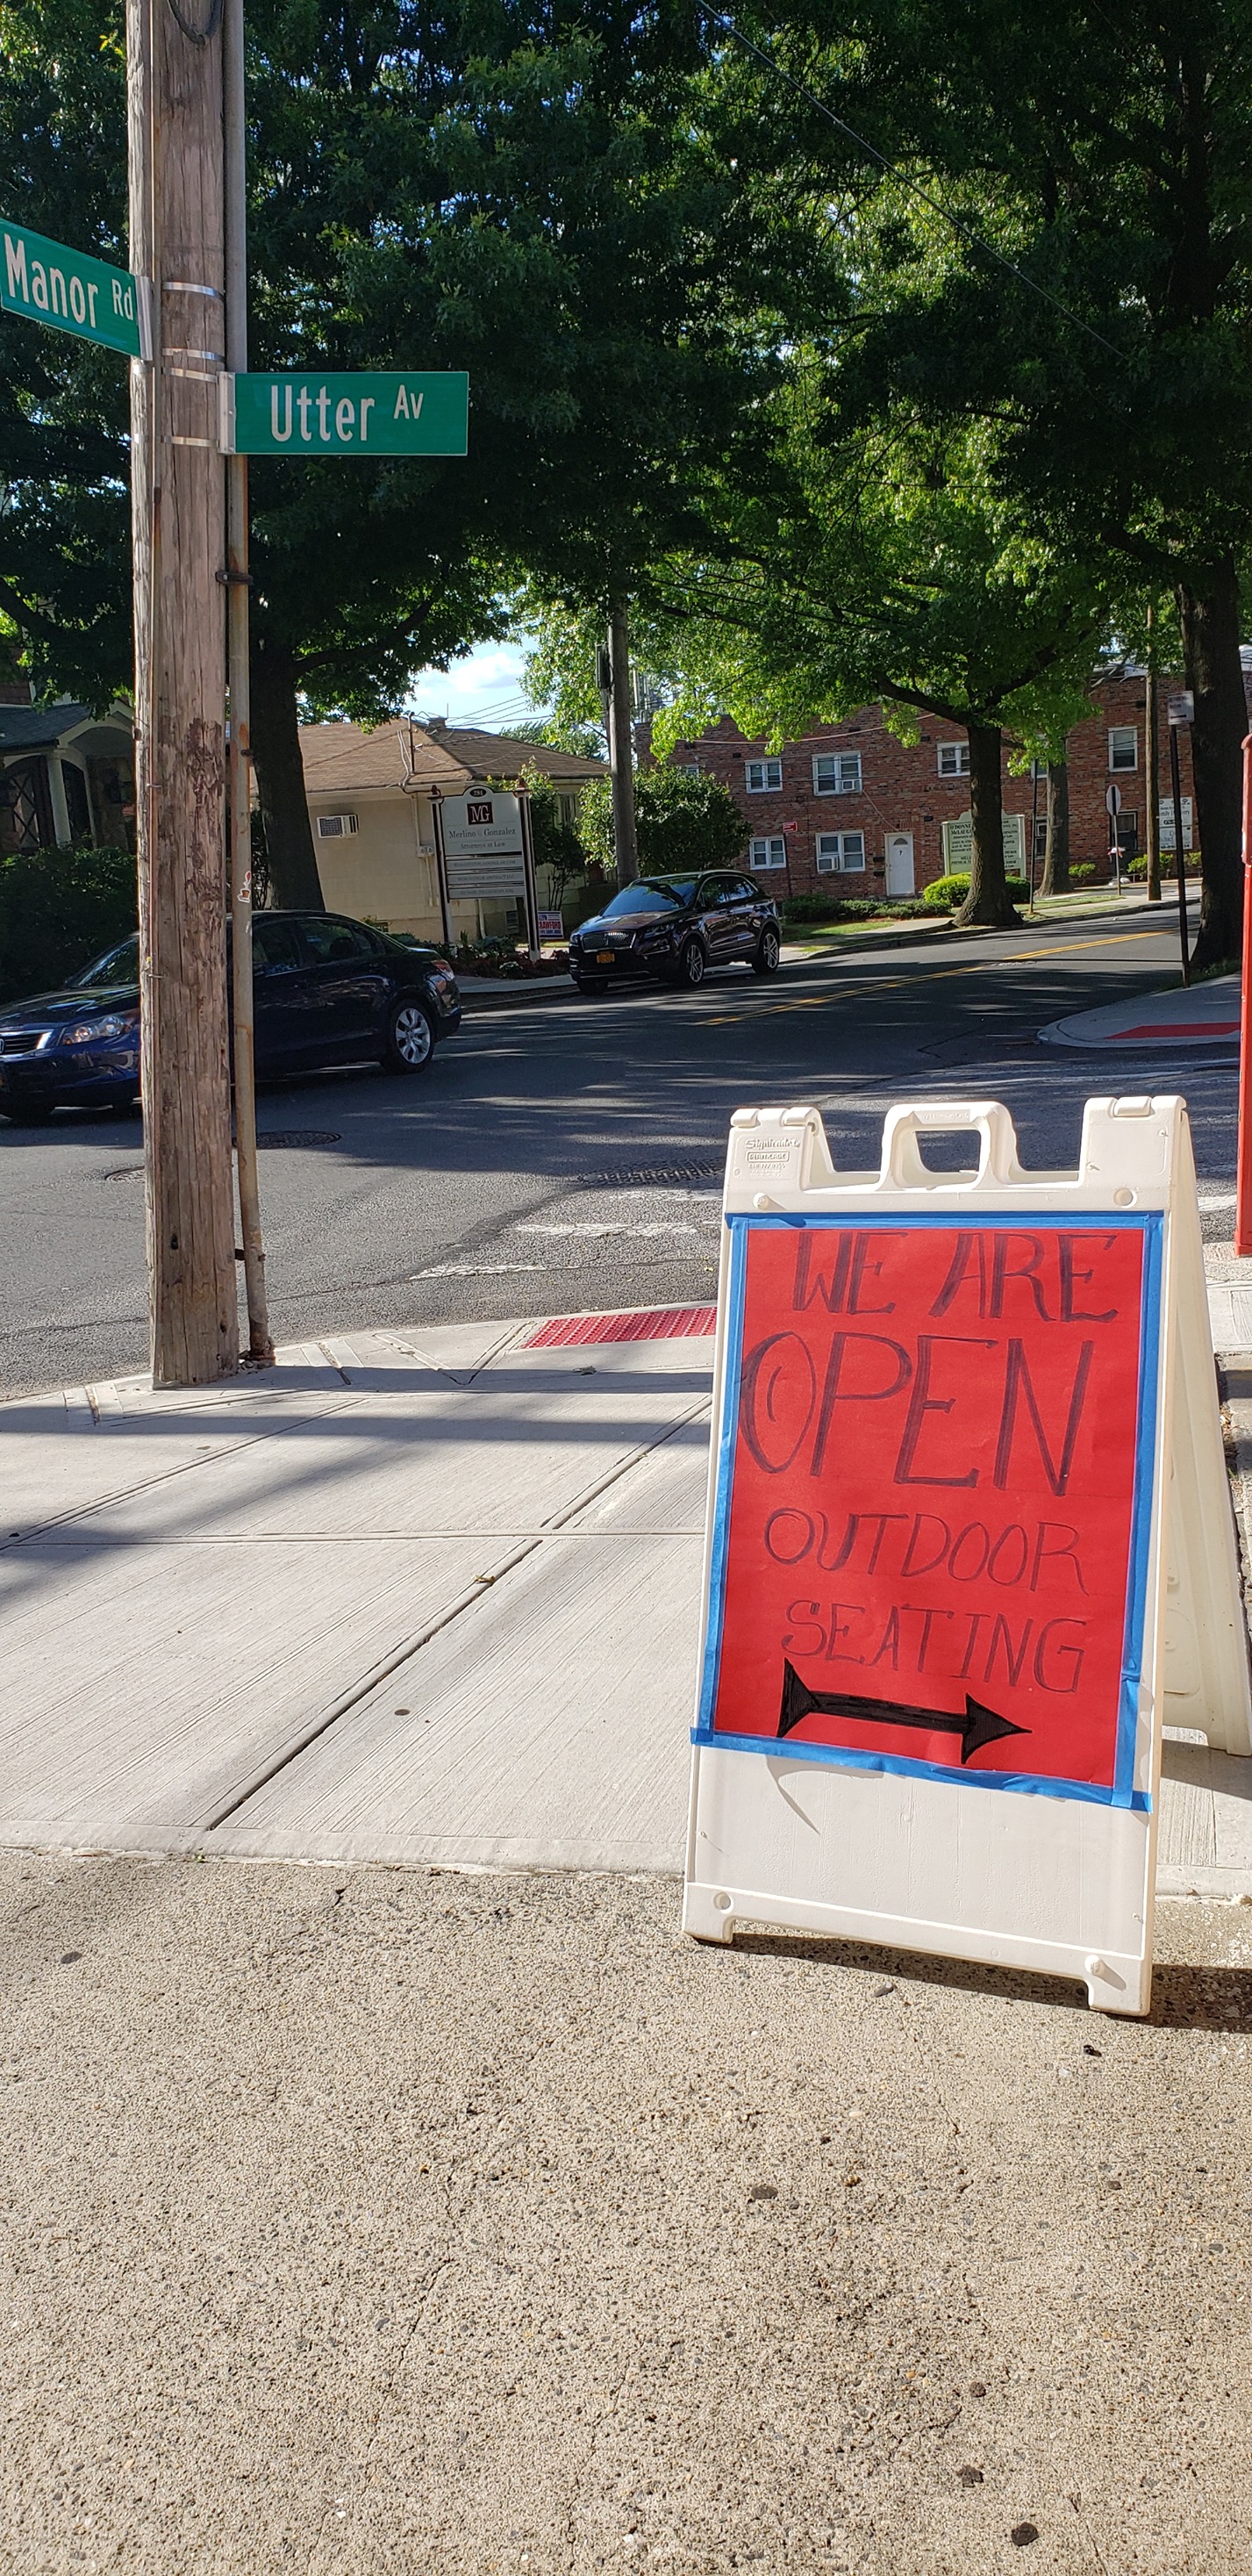 Manor Rd
Utter Av
MG
Merlino & Gonzalez
Attorneys at Law
WE ARE
OPEN
OUTDOOR
SEATING